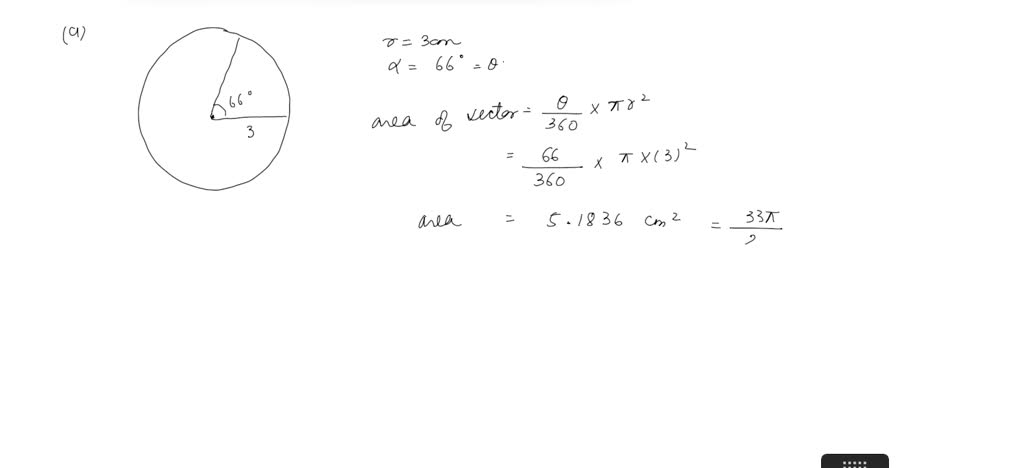 (a)
66°
3
r = 3cm
α = 66° = θ.
area of sector = θ/360 × πr²
= 66/360 × π × (3)²
area = 5.1836 cm² = 33π/2